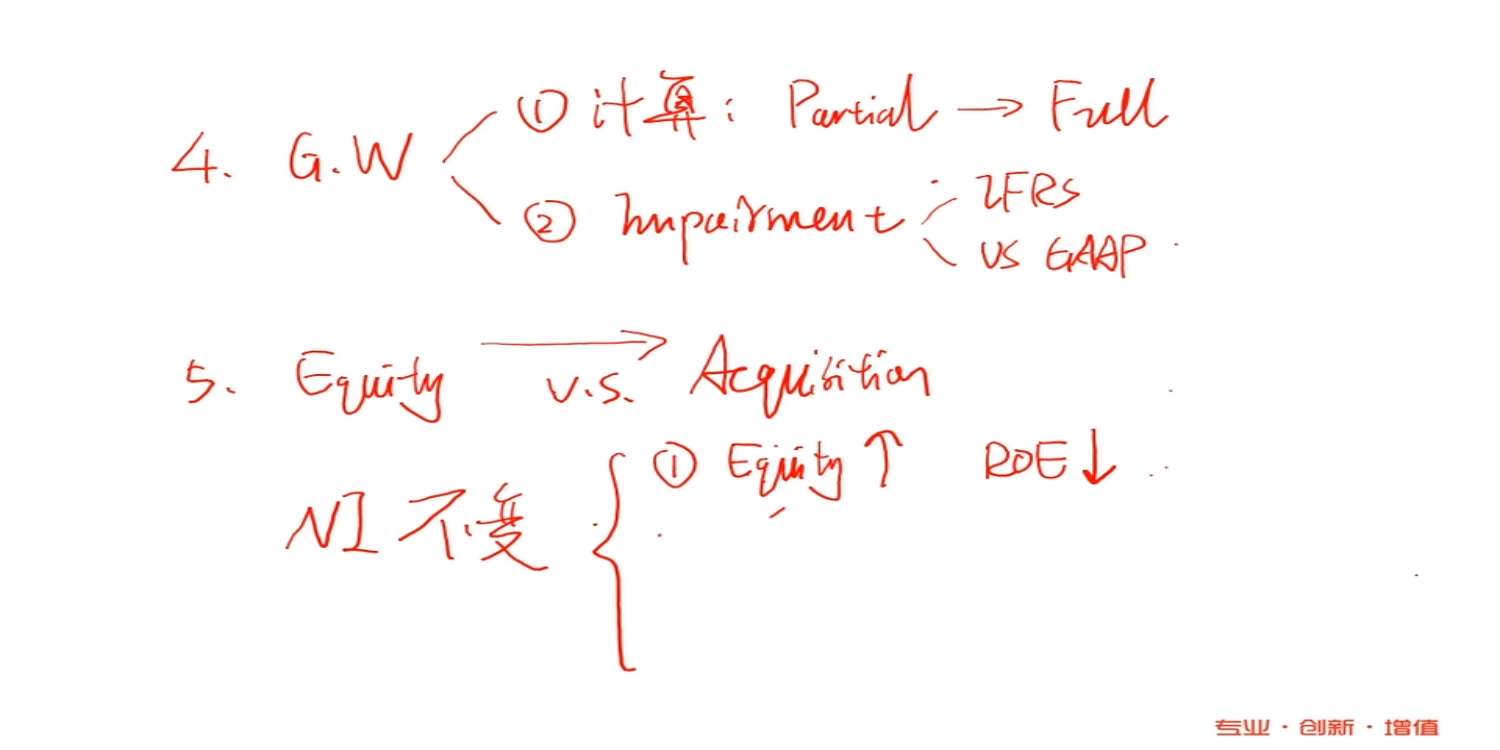 4. G.W ① 计算: Partial → Full
② Impairment IFRS
US GAAP
5. Equity → V.S. Acquisition
NI 不变 ① Equity ↑ ROE ↓
专业·创新·增值